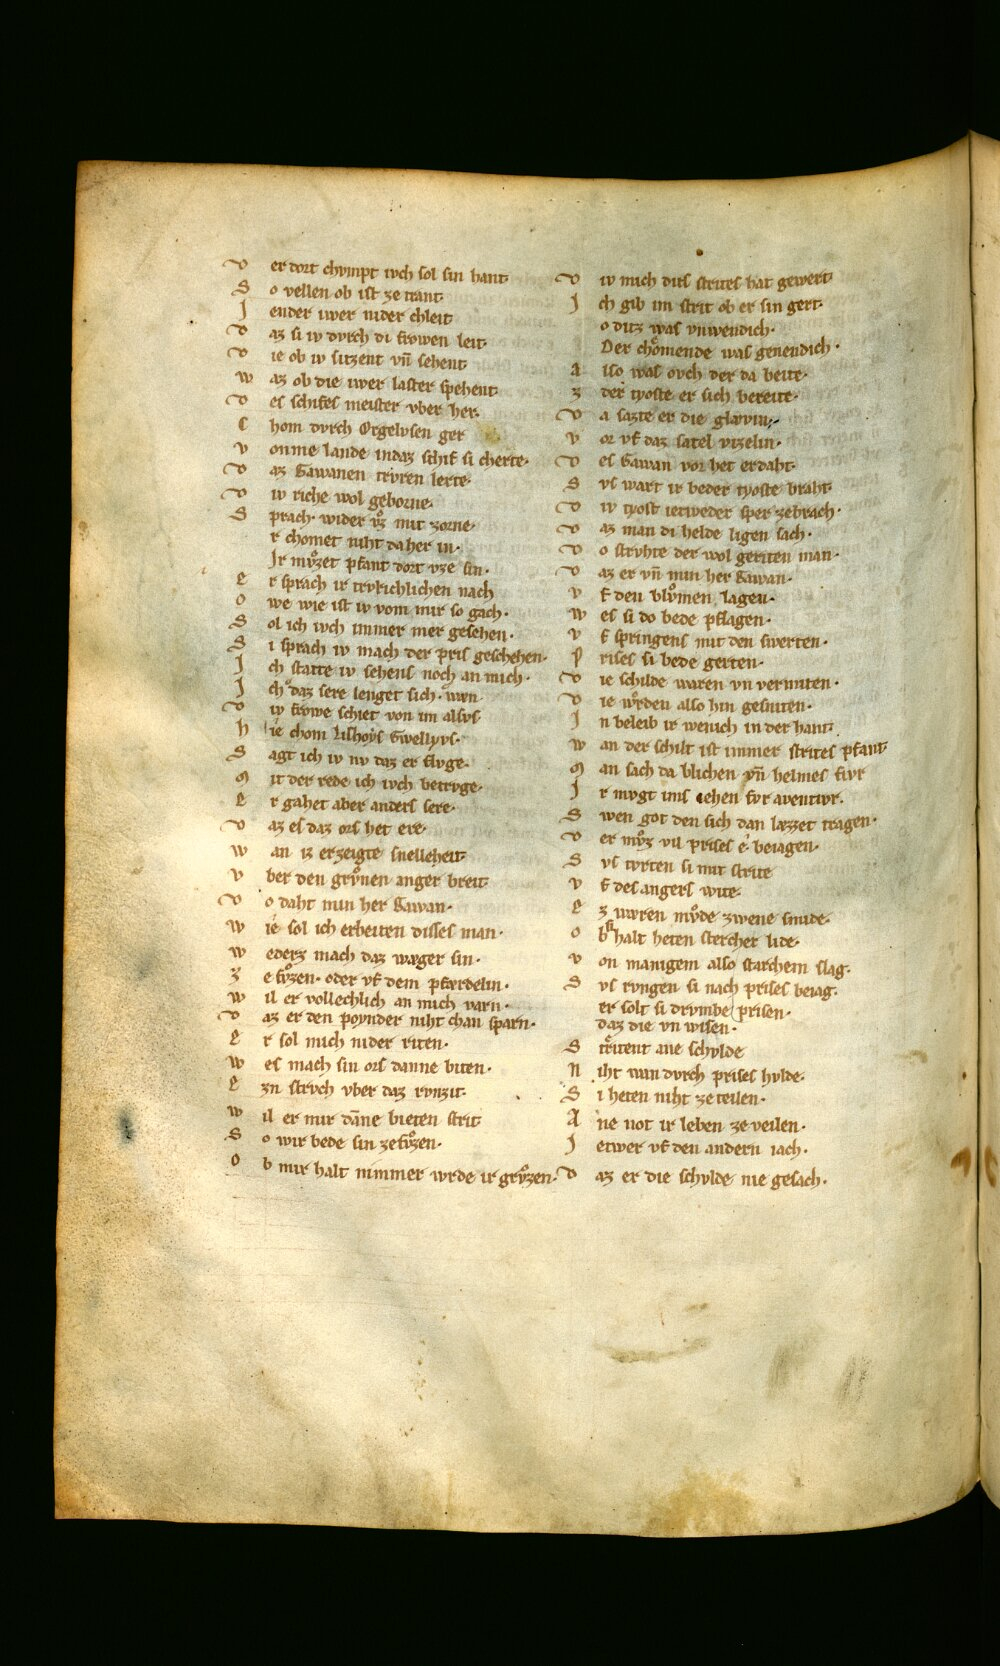 D er dort chvmpt iwch sol sin hant·
S o vellen ob ist ze trant·
J ender iwer nider chleit
D az si iv dvrch di frowen leit·
D ie ob iv sitzent vn̄ sehent·
W az ob die iwer laster spehent·
D es schifes meister vber her·
C hom dvrch Orgelvsen ger
V onme lande indaz schif si cherte·
D az Gawanen trvren lerte·
D iv riche wol geborne·
S prach· wider vͦz mit zorne·
r chomet niht da her in·
Jr mvͦzet pfant dort vze sin·
E r sprach ir trvrichlichen nach
O we wie ist iv vom mir so gach·
S ol ich iwch immer mer gesehen·
S i sprach iv mach der pris geschehen·
J ch statte iv sehens noch an mich·
J ch daz sere lenget sich· wan
D iv frowe schiet von im alsvs
H ie chom Lishoys Gwellyvs·
S agt ich iv nv daz er flvge·
M it der rede ich iwch betrvge·
E r gahet aber anders sere·
D az es daz ors het ere·
W an iz erzeigte snelleheit·
V ber den grvͦnen anger breit·
D o daht min her Gawan·
W ie sol ich erbeiten disses man·
W eders mach daz wæger sin·
Z e fvͦzen· oder vf dem pfærdelin·
W il er vollechlich an mich varn·
D az er den poynder niht chan sparn·
E r sol mich nider riten·
W es mach sin ors danne biten·
E zn strvch vber daz rvnzit·
W il er mir dāne bieten strit
S o wir bede sin ze fvͦzen·
O b mir halt nimmer wrde ir grvͦzen·
D iv mich dirs strites hat gewert·
J ch gib im strit ob er sin gert·
o ditz was vnwendich·
Der choͤmende was genendich·
A lso was ovch der da beite·
Z der tyoste er sich bereite·
D a sazte er die glævin·
V or vf daz satel vizelin·
D es Gawan vor het erdaht·
S vs wart ir beder tyoste braht·
D iv tyost ietweder sper zebrach·
D az man di helde ligen sach·
D o strvhte der wol geriten man·
D az er vn̄ min her Gawan·
V f den blvͦmen lagen·
W es si do bede pflagen·
V f springens mit den swerten·
P rises si bede gerten·
D ie schilde waren vn vermiten·
D ie wͦrden also hin gesniten·
J n beleib ir wenich in der hant·
W an der schilt ist immer strites pfant·
M an sach da blichen vn̄ helmes fivr
J r mvgt ims iehen fvr aventivr·
S wen got den sich dan læzzet tragen·
D er mvͦz vil prises e beiagen·
S vs tvrten si mit strite
V f des angers wite·
E z wæren mvͦde zwene smide·
O b si halt heten stercher lide·
V on manigem also starchem slag·
S vs rvngen si nach prises beiag·
er solt si drvmbe prisen·
daz die vn wisen·
S triͤtent ane schvlde
N iht wan dvrch prises hvlde·
S i heten niht ze teilen·
A ne not ir leben ze veilen·
J etwer vf den andern iach·
D az er die schvlde nie gesach·